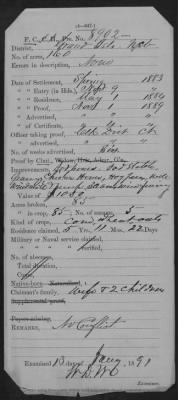 (4—447.)
F. C., No. 8902
District, Grand Isle Neb
No. of acres, 160
Errors in description, None
Date of Settlement, Spring 1883
" " Entry (in Hds.)
" " Residence, May 1 1884
" " Proof, Nov 1 1889
" " Affidavit,
" " Certificate,
Officer taking proof, Clk Dist Ct
No. of weeks advertised, Six
Proof by Claimt.,
Improvements,
Granary Chicken House, Hog pen, Well
Windmill
Value of, $1000
Acres broken, 85
" in crop, 85
Kind of crops, Corn, oats
Residence claimed, 5 Yrs. 11 Mos. 22 Days
Military or Naval service claimed,
" " " verified,
No. of absences,
Total duration,
Cause,
Native-born Naturalized,
Claimant's family, Wife & 2 children
Supplemental proof,
Papers missing,
REMARKS, No Conflict
Examined 13 day of Jany, 1891
Examiner.